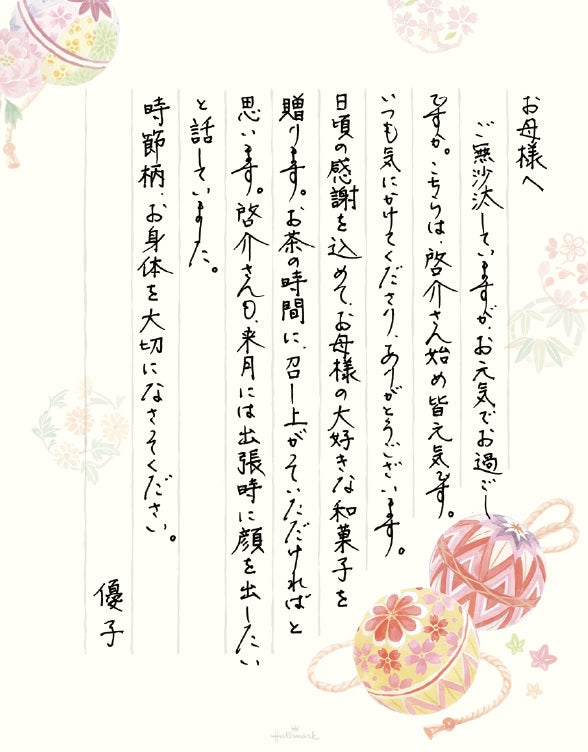 お母様へ
ご無沙汰していますが、お元気でお過ごし
ですか。こちらは、啓介さん始め皆元気です。
いつも気にかけてくださり、ありがとうございます。
日頃の感謝を込めて、お母様の大好きな和菓子を
贈ります。お茶の時間に、召し上がっていただければと
思います。啓介さんも、来月には出張時に顔を出したい
と話していました。
時節柄、お身体を大切になさってください。
優子
Hallmark